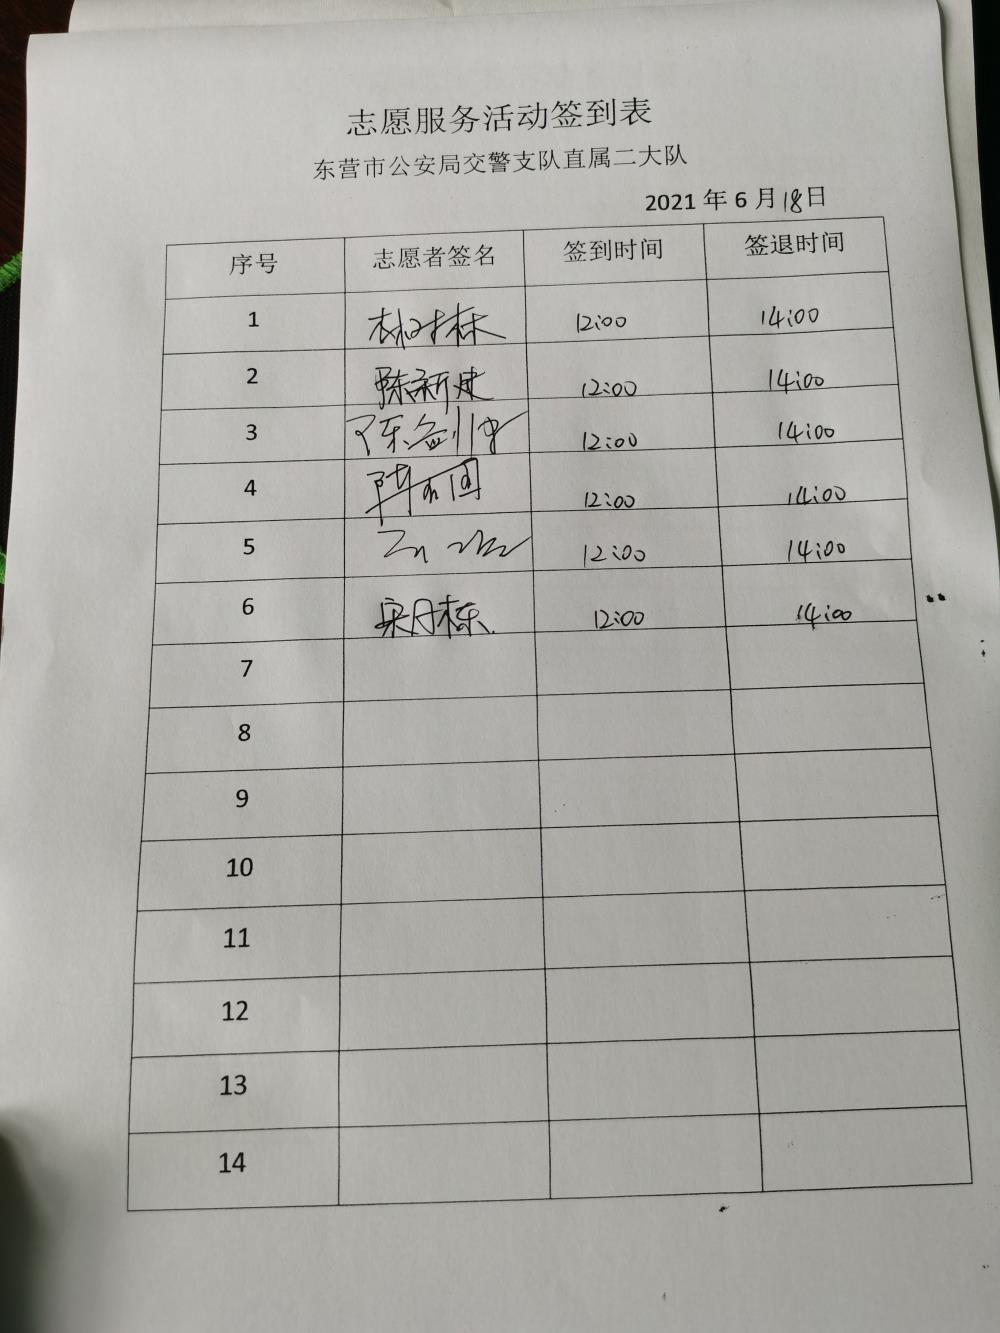 志愿服务活动签到表
东营市公安局交警支队直属二大队
2021 年 6 月 18 日
序号 志愿者签名 签到时间 签退时间
1 12:00 14:00
2 陈新建 12:00 14:00
3 12:00 14:00
4 12:00 14:00
5 12:00 14:00
6 宋丹栋 12:00 14:00
7
8
9
10
11
12
13
14